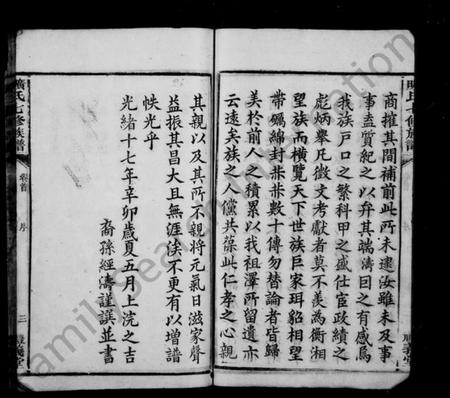 商摧其間補前此所未逮汝雖未及事
事盍質紀之以弁其端濤回之有感焉
我族戶口之繁科甲之盛仕宦政績之
彪炳舉凡徵文考獻者莫不羨為衡湘
望族而橫覽天下世族巨家珥貂相望
帶礪綿封井井數十傳勿替論者皆歸
美於前人之積累以我祖澤所留遺亦
云遠矣族之人儻共葆此仁孝之心親
其親以及其所不親將元氣日滋家聲
益振其昌大且無涯涘不更有以增譜
帙光乎
光緒十七年辛卯歲夏五月上浣之吉
裔孫經濤謹譔並書
氏七修族譜
卷首
序
三
FamilySearch